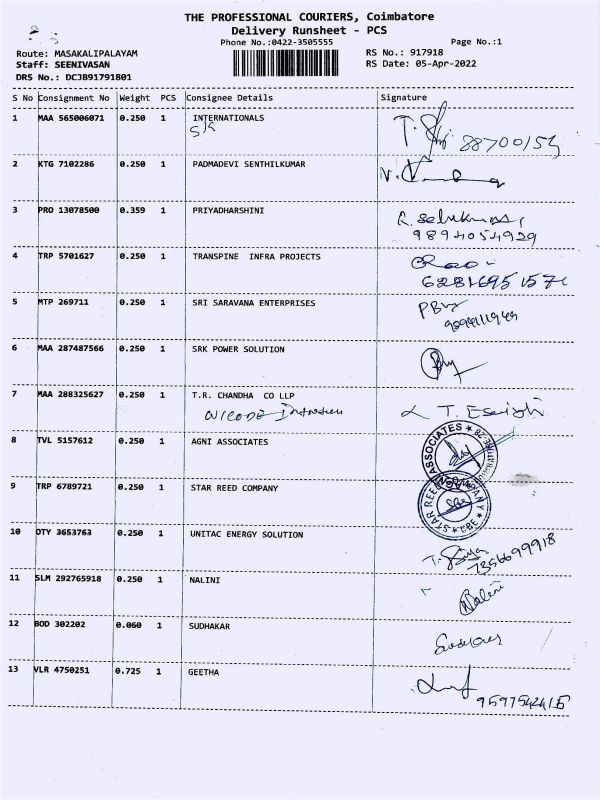 THE PROFESSIONAL COURIERS, Coimbatore
Delivery Runsheet - PCS
Phone No.:0422-3505555 Page No.:1
Route: MASAKALIPALAYAM RS No.: 917918
Staff: SEENIVASAN RS Date: 05-Apr-2022
DRS No.: DCJB91791801
S No Consignment No Weight PCS Consignee Details Signature
1 MAA 565006071 0.250 1 INTERNATIONALS
2 KTG 7102286 0.250 1 PADMADEVI SENTHILKUMAR
3 PRO 13078500 0.359 1 PRIYADHARSHINI
9894054929
4 TRP 5701627 0.250 1 TRANSPINE INFRA PROJECTS
5 MTP 269711 0.250 1 SRI SARAVANA ENTERPRISES
6 MAA 287487566 0.250 1 SRK POWER SOLUTION
7 MAA 288325627 0.250 1 T.R. CHANDHA CO LLP
8 TVL 5157612 0.250 1 AGNI ASSOCIATES
ASSOCIATES
9 TRP 6789721 0.250 1 STAR REED COMPANY
STAR REED COMPANY CBE
10 OTY 3653763 0.250 1 UNITAC ENERGY SOLUTION
7356699918
11 SLM 292765918 0.250 1 NALINI
Nalini
12 BOD 302202 0.060 1 SUDHAKAR
13 VLR 4750251 0.725 1 GEETHA